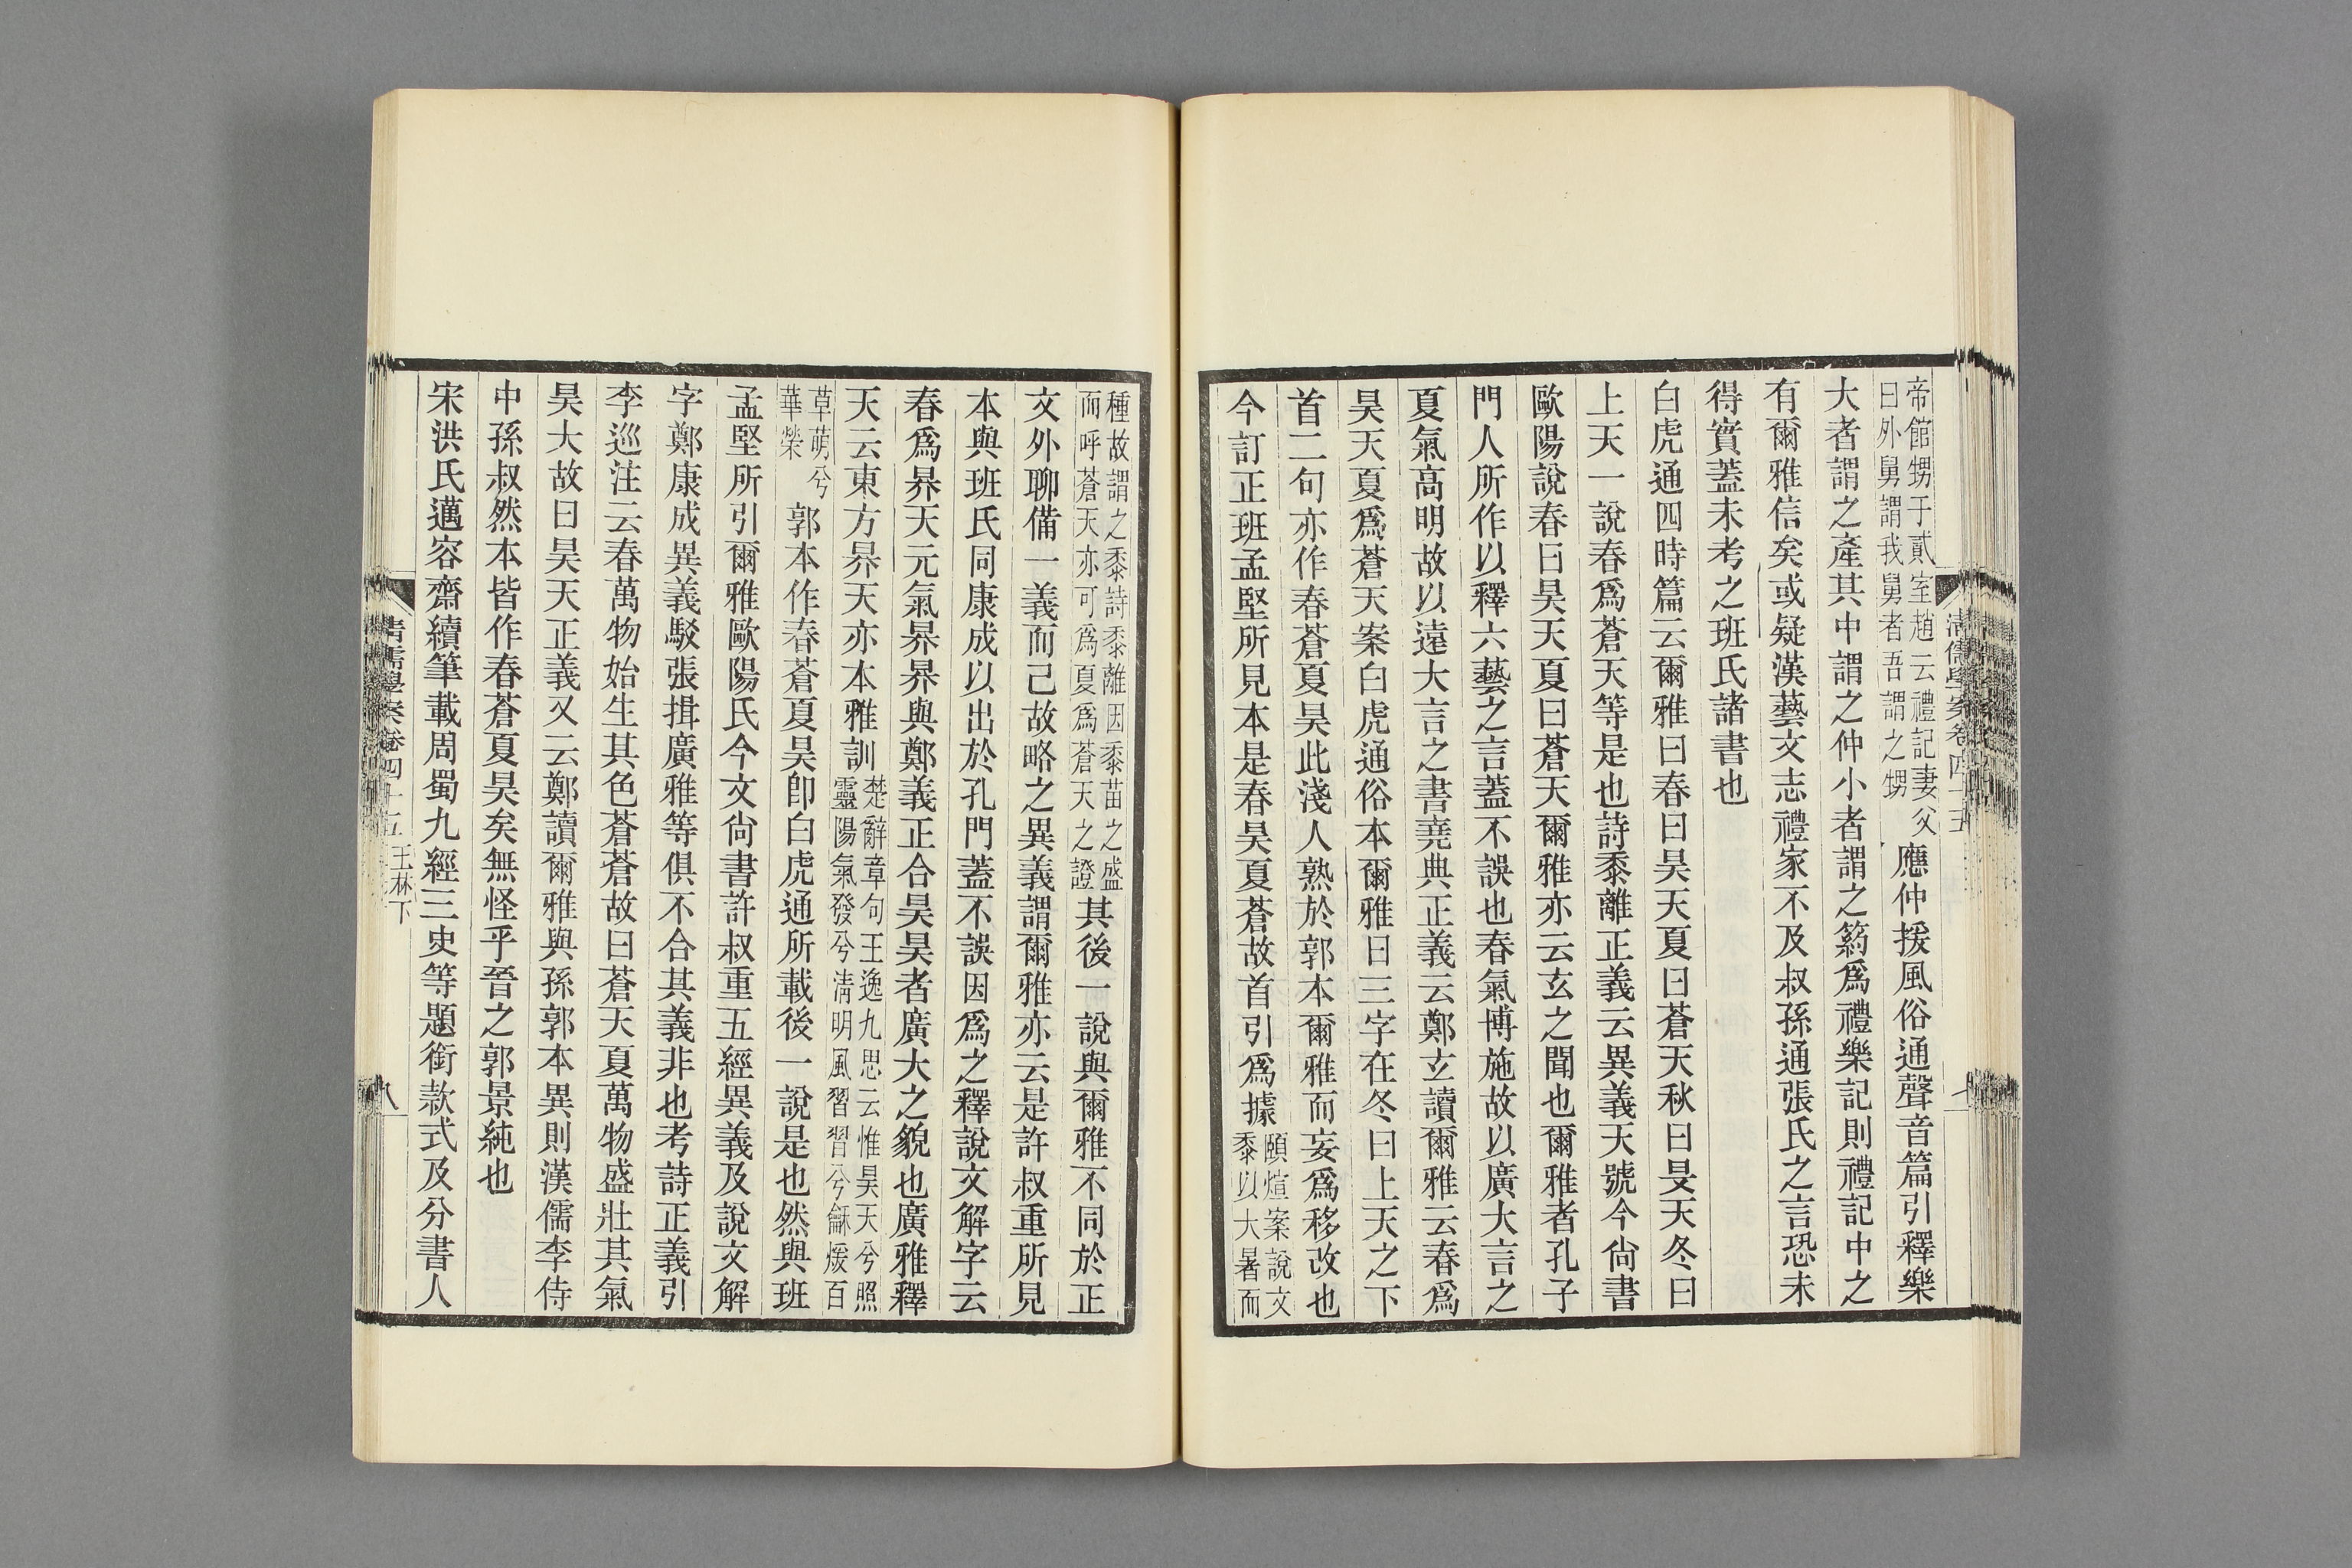 帝館甥于貳室趙云禮記妻父
曰外舅謂我舅者吾謂之甥
應仲援風俗通聲音篇引釋樂
大者謂之產其中謂之仲小者謂之箹爲禮樂記則禮記中之
有爾雅信矣或疑漢藝文志禮家不及叔孫通張氏之言恐未
得實蓋未考之班氏諸書也
白虎通四時篇云爾雅曰春曰昊天夏曰蒼天秋曰旻天冬曰
上天一說春爲蒼天等是也詩黍離正義云異義天號今尙書
歐陽說春曰昊天夏曰蒼天爾雅亦云玄之聞也爾雅者孔子
門人所作以釋六藝之言蓋不誤也春氣博施故以廣大言之
夏氣高明故以遠大言之書堯典正義云鄭玄讀爾雅云春爲
昊天夏爲蒼天案白虎通俗本爾雅曰三字在冬曰上天之下
首二句亦作春蒼夏昊此淺人熟於郭本爾雅而妄爲移改也
今訂正班孟堅所見本是春昊夏蒼故首引爲據
頤煊案說文
黍以大暑而
種故謂之黍詩黍離因黍苗之盛
而呼蒼天亦可爲夏爲蒼天之證
其後一說與爾雅不同於正
文外聊備一義而已故略之異義謂爾雅亦云是許叔重所見
本與班氏同康成以出於孔門蓋不誤因爲之釋說文解字云
春爲昦天元氣昦昦與鄭義正合昊昊者廣大之貌也廣雅釋
天云東方昦天亦本雅訓
楚辭章句王逸九思云惟昊天兮照
靈陽氣發兮淸明風習習兮龢煖百
草萌兮
華榮
郭本作春蒼夏昊卽白虎通所載後一說是也然與班
孟堅所引爾雅歐陽氏今文尙書許叔重五經異義及說文解
字鄭康成異義駁張揖廣雅等俱不合其義非也考詩正義引
李巡注云春萬物始生其色蒼蒼故曰蒼天夏萬物盛壯其氣
昊大故曰昊天正義又云鄭讀爾雅與孫郭本異則漢儒李侍
中孫叔然本皆作春蒼夏昊矣無怪乎晉之郭景純也
宋洪氏邁容齋續筆載周蜀九經三史等題銜款式及分書人
清儒學案卷四十五
七
清儒學案卷四十五
玉林下
八